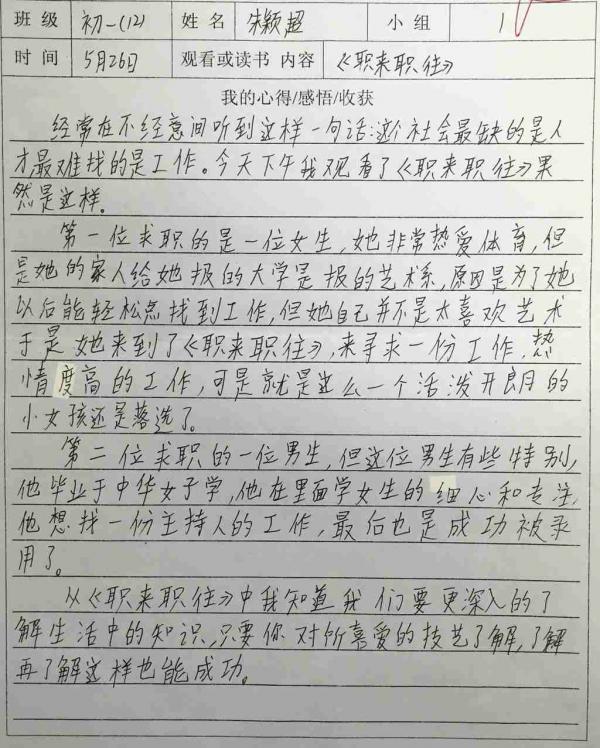 班 级 初一(12) 姓 名 朱颖超 小 组 1
时 间 5月26日 观看或读书 内容 《职来职往》
我的心得/感悟/收获
经常在不经意间听到这样一句话:这个社会最缺的是人
才,最难找的是工作。今天下午我观看了《职来职往》果
然是这样。
第一位求职的是一位女生,她非常热爱体育,但
是她的家人给她报的大学是报的艺术系,原因是为了她
以后能轻松点找到工作,但她自己并不是太喜欢艺术
于是她来到了《职来职往》,来寻求一份工作,热
情度高的工作,可是就是这么一个活泼开朗的
小女孩还是落选了。
第二位求职的一位男生,但这位男生有些特别,
他毕业于中华女子学,他在里面学女生的细心和专注,
他想找一份主持人的工作,最后也是成功被录
用了。
从《职来职往》中我知道我们要更深入的了
解生活中的知识,只要你对所喜爱的技艺了解,了解
再了解这样也能成功。